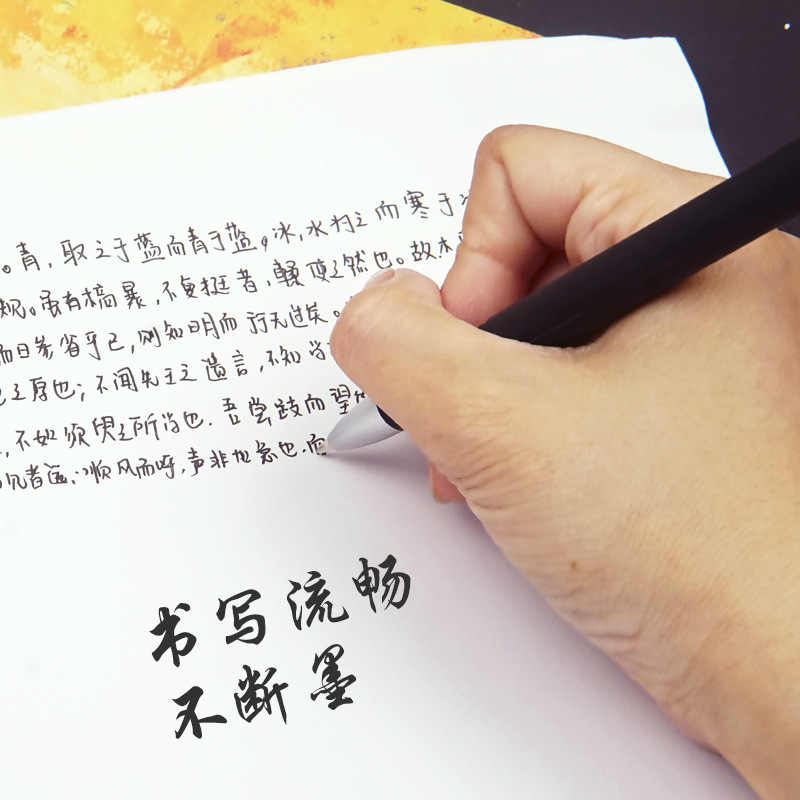 。青,取之于蓝而青于蓝。冰,水为之而寒于
规。虽有槁暴,不复挺者,輮使之然也。故木
而日参省乎己,则知明而行无过矣。
之厚也;不闻先王之遗言,不知
,不如须臾之所学也.吾尝跂而望
见者远.顺风而呼,声非加急也.而
书写流畅
不断墨